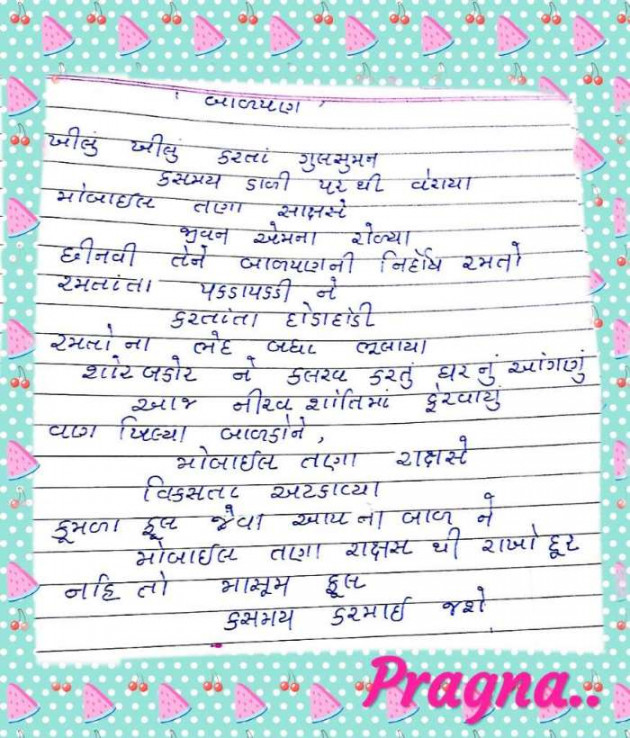 બાળપણ
ખીલું ખીલું કરતાં ગુલસુમન
કસમય ડાળી પરથી વેરાયા
મોબાઈલ તણા રાક્ષસે
જીવન એમના રોળ્યા
છીનવી તેને બાળપણની નિર્દોષ રમતો
રમતાંતા પકડાપકડી ને
કરતાંતા દોડાદોડી
રમતોના ભેદ બધા ભૂલાયા
શોર બકોર ને કલરવ કરતું ઘરનું આંગણું
આજ નીરવ શાંતિમાં ફેરવાયું
વણ ખિલ્યા બાળકોને,
મોબાઈલ તણા રાક્ષસે
વિકસતા અટકાવ્યા
કૂમળા ફૂલ જેવા આપના બાળ ને
મોબાઈલ તણા રાક્ષસ થી રાખો દૂર
નહિ તો માસૂમ ફૂલ
કસમય કરમાઈ જશે
Pragna..